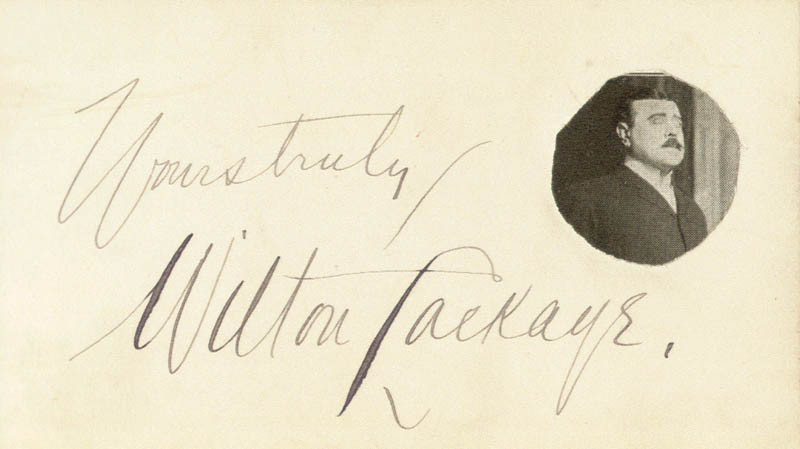 Yours truly
Wilton Lackaye.